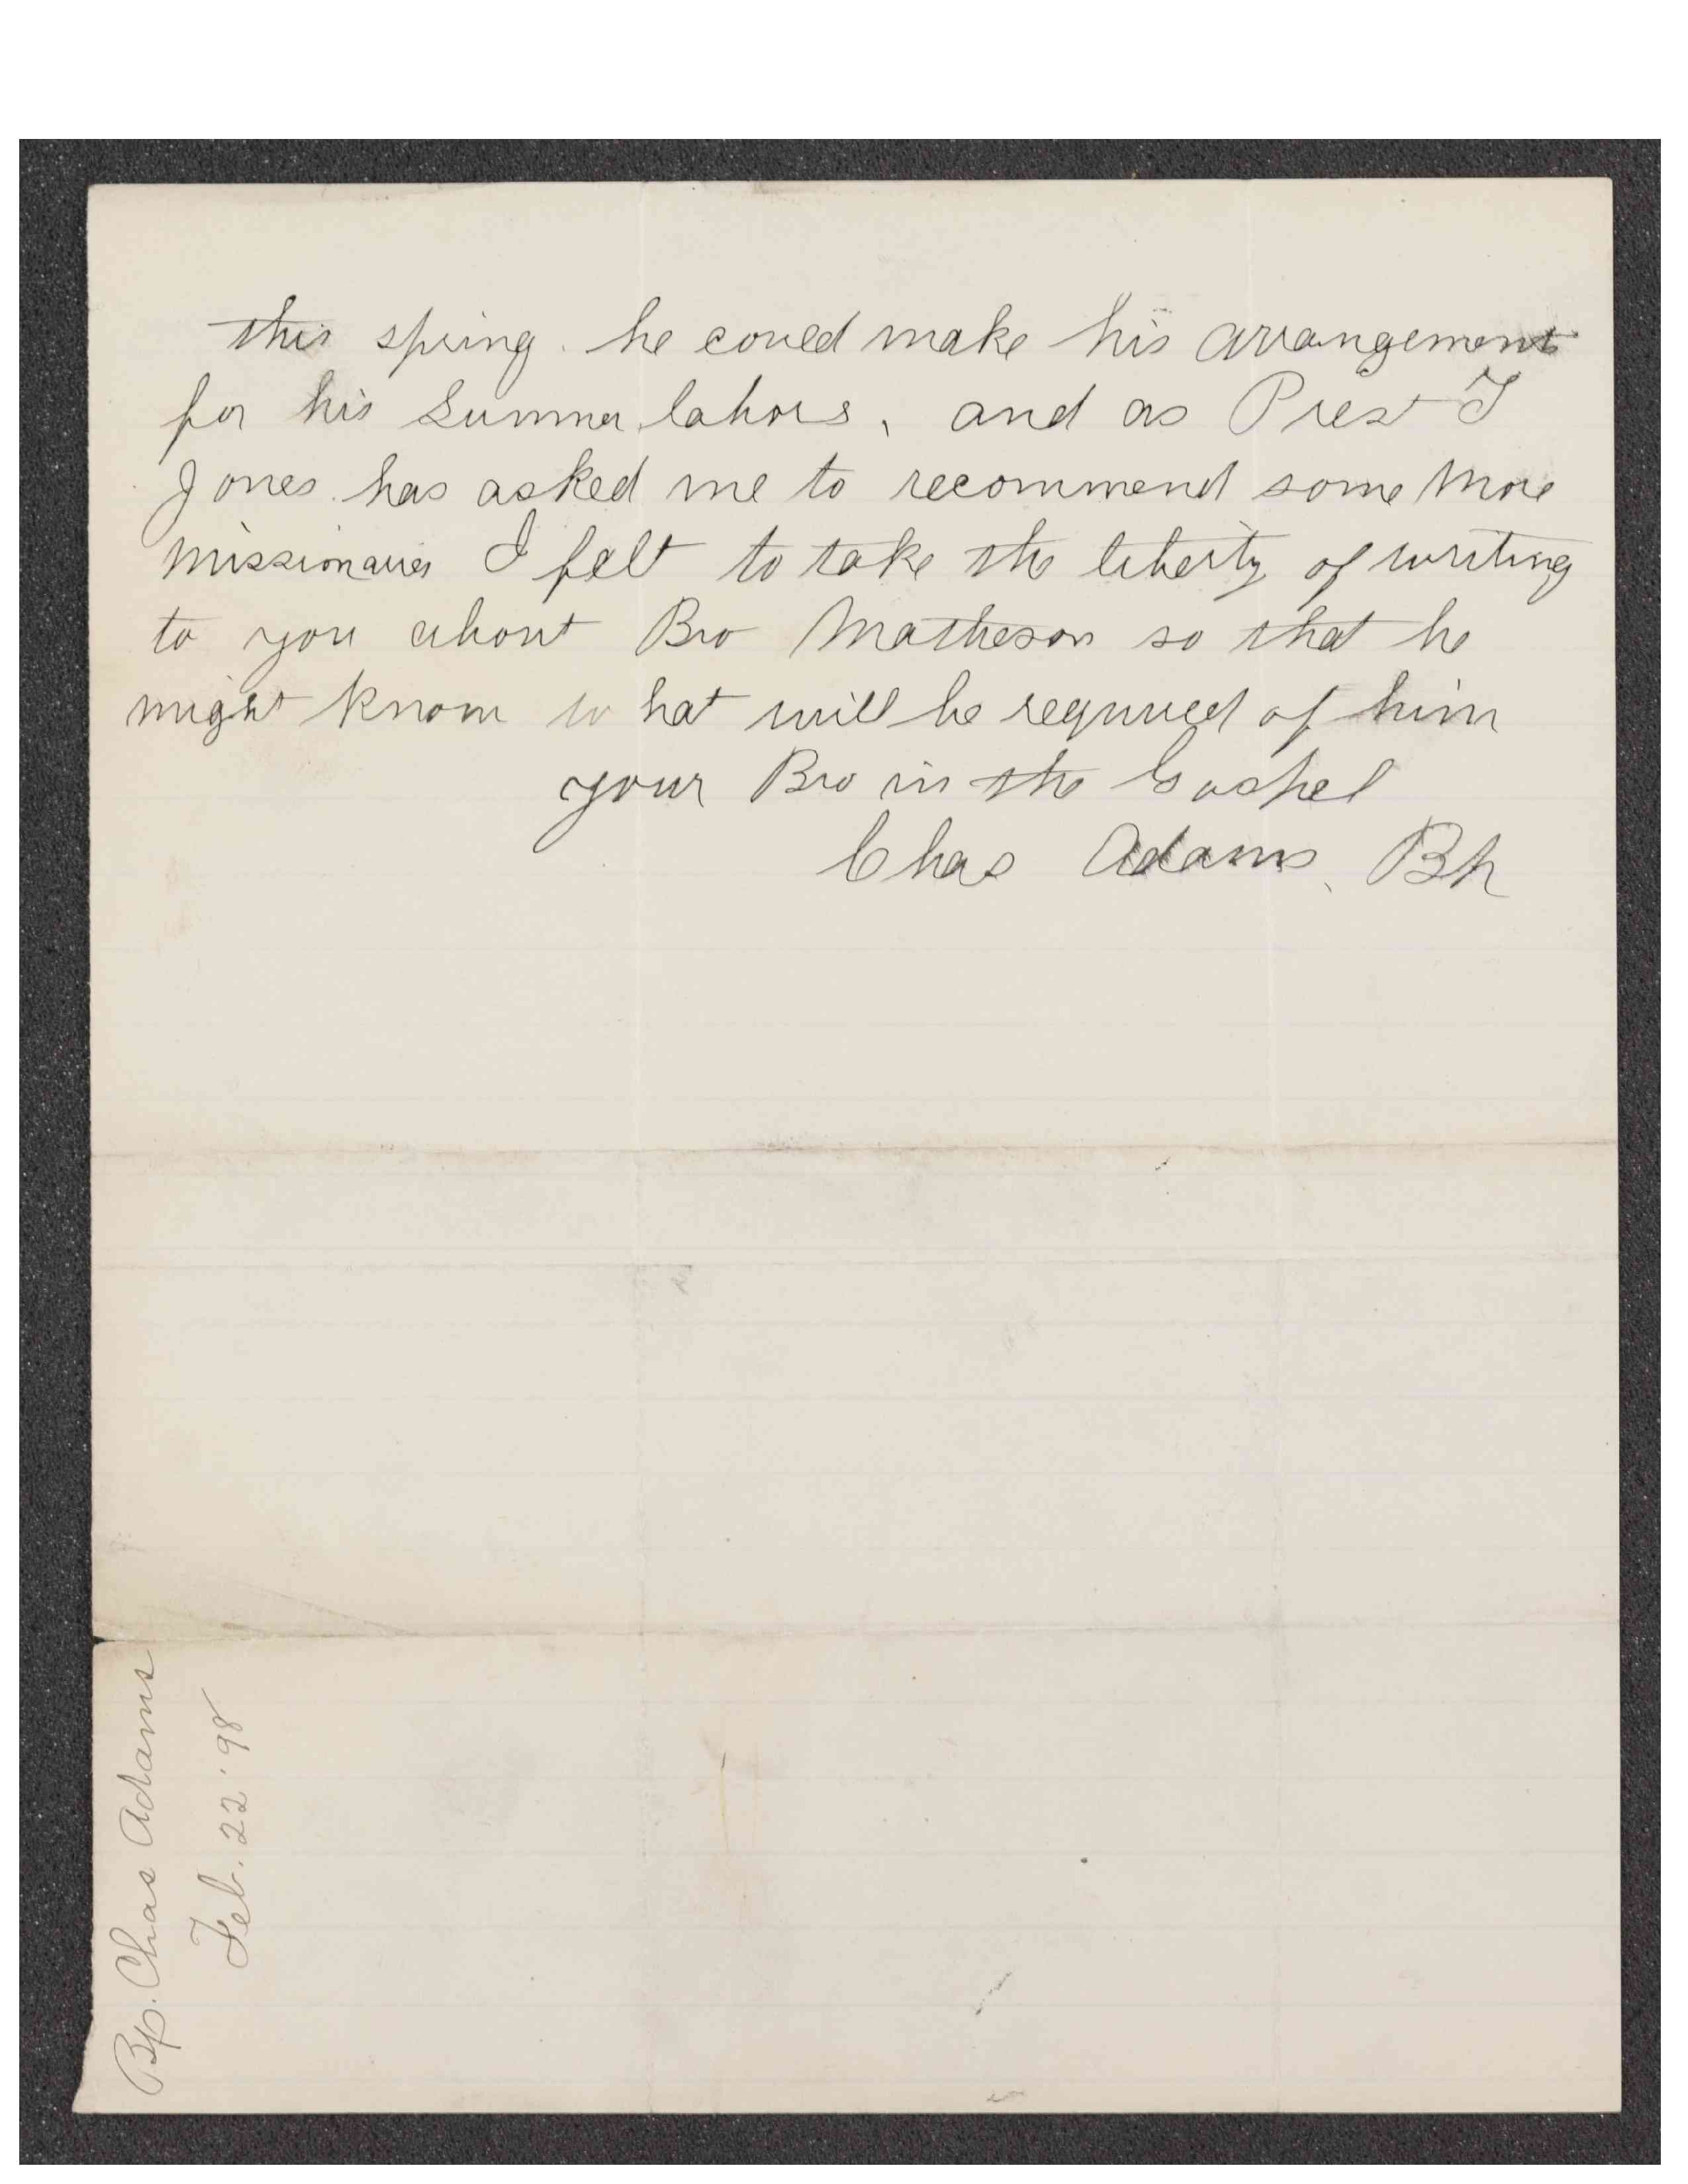 this spring. he could make his arrangements
for his Summer labors, and as Prest T
Jones. has asked me to recommend some more
missionaries I felt to take the liberty of writing
to you about Bro Matheson so that he
might know what will be required of him
your Bro in the Gospel
Chas Adams, Bp
Bp. Chas Adams
Feb. 22 '98